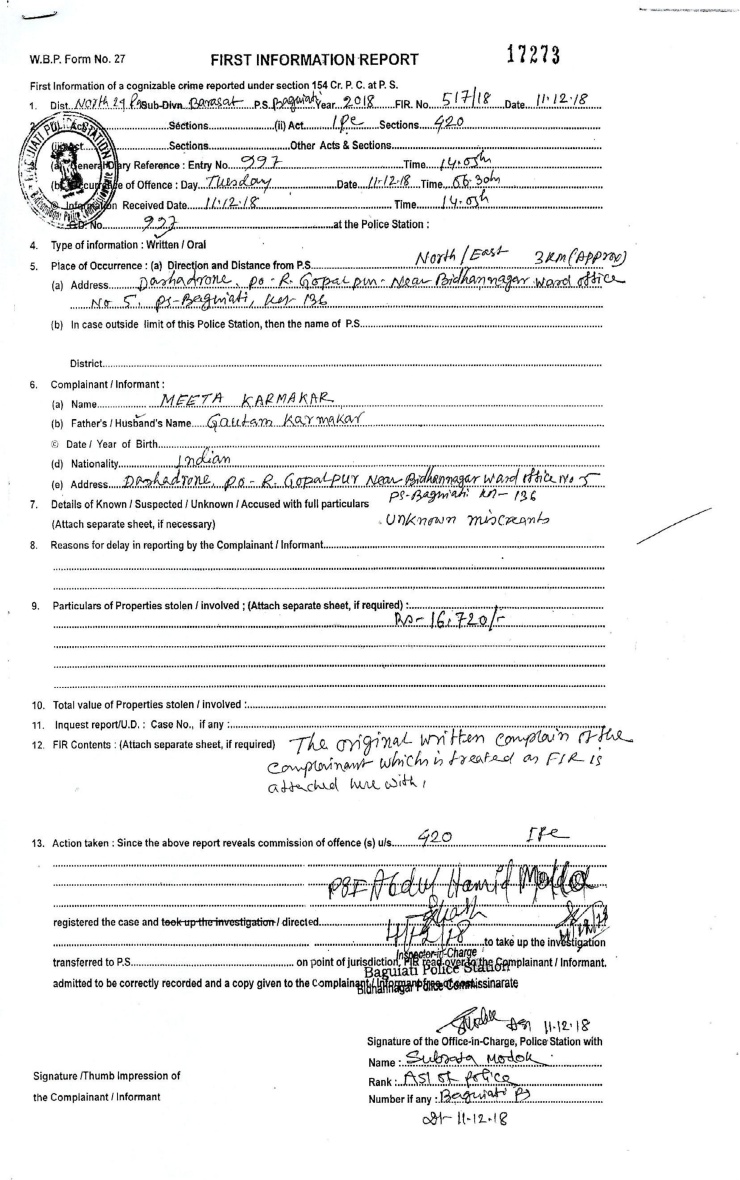 W.B.P. Form No. 27 FIRST INFORMATION REPORT 17273
First Information of a cognizable crime reported under section 154 Cr. P. C. at P. S.
1. Dist. North 24 Sub-Divn. Barasat P.S. Baguiati Year 2018 FIR. No. 517/18 Date 11.12.18
Sections (ii) Act IPC Sections 420
Sections Other Acts & Sections
3. (a) General Diary Reference : Entry No. 997 Time 14.05h
(b) Occurrence of Offence : Day Tuesday Date 11-12-18 Time 06.30h
© Information Received Date 11.12.18 Time 14.05h
G.D. No. 997 at the Police Station :
4. Type of information : Written / Oral
5. Place of Occurrence : (a) Direction and Distance from P.S. North/East 3 KM (Approx)
(a) Address Dashadrone, PO - R. Gopalpur - Near Bidhannagar ward office
No 5, PS-Baguiati, Kol-136
(b) In case outside limit of this Police Station, then the name of P.S.
District
6. Complainant / Informant :
(a) Name MEETA KARMAKAR
(b) Father's / Husband's Name Gautam Karmakar
© Date / Year of Birth
(d) Nationality Indian
(e) Address Dashadrone, PO - R. Gopalpur Near Bidhannagar Ward office No 5
PS-Baguiati Kol-136
7. Details of Known / Suspected / Unknown / Accused with full particulars
(Attach separate sheet, if necessary) Unknown miscreants
8. Reasons for delay in reporting by the Complainant / Informant
9. Particulars of Properties stolen / involved ; (Attach separate sheet, if required) :
Rs- 16,720/-
10. Total value of Properties stolen / involved :
11. Inquest report/U.D. : Case No., if any :
12. FIR Contents : (Attach separate sheet, if required) The original written complain of the
complainant which is treated as FIR is
attached here with,
13. Action taken : Since the above report reveals commission of offence (s) u/s. 420 IPC
PSI Abdul Hamid Molla
registered the case and took up the investigation / directed
11/12/18 to take up the investigation
Inspector-in-Charge
transferred to P.S. on point of jurisdiction, FIR read over to the Complainant / Informant.
Baguiati Police Station
admitted to be correctly recorded and a copy given to the Complainant / Informant free of cost
Bidhannagar Police Commissinarate
ASI 11.12.18
Signature of the Office-in-Charge, Police Station with
Name : Subrata Modok
Signature /Thumb Impression of
Rank : ASI of police
the Complainant / Informant
Number if any : Baguiati PS
Dt- 11.12.18